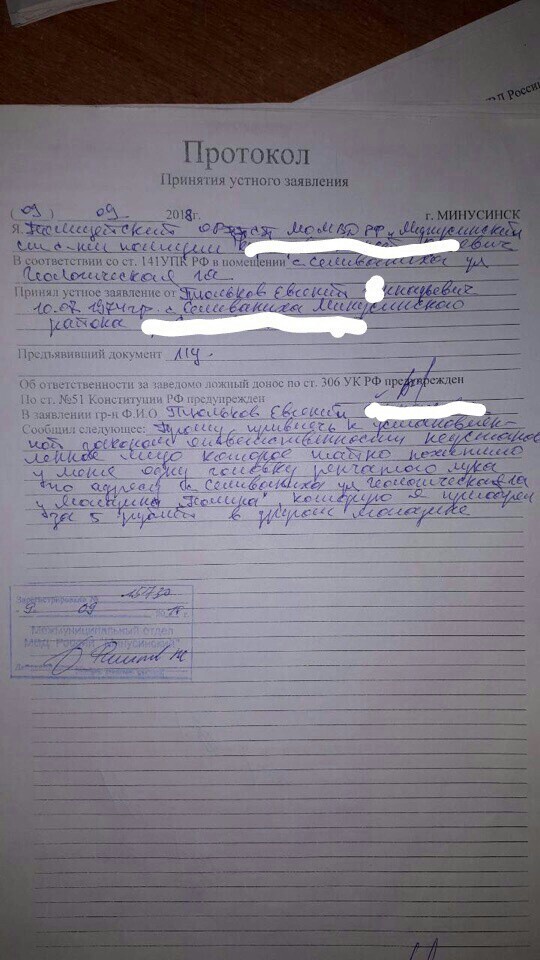 ВД Росси
Протокол
Принятия устного заявления
(09) 09 2018г. г. МИНУСИНСК
Я. Полицейский МОМВД РФ "Минусинский"
полиции евич
В соответствии со ст. 141УПК РФ в помещении с. Селиваниха ул
Геологическая
Принял устное заявление от Тюльков Евгений ннадьевич
10.07.1974гр. с. Селиваниха Минусинского
района
Предъявивший документ
Об ответственности за заведомо ложный донос по ст. 306 УК РФ предупрежден
По ст. №51 Конституции РФ предупрежден
В заявлении гр-н Ф.И.О. Тюльков Евгений
Сообщил следующее: Прошу привлечь к установлен-
ной законом ответственности неустанов
ленное лицо которое тайно похитило
у меня одну головку репчатого лука
по адресу с. Селиваниха ул Геологическая
у магазина которую я приобрел
за 5 рублей в другом магазине
Зарегистрировано №
9. 09
Межмуниципальный отдел
МВД России "Минусинский"